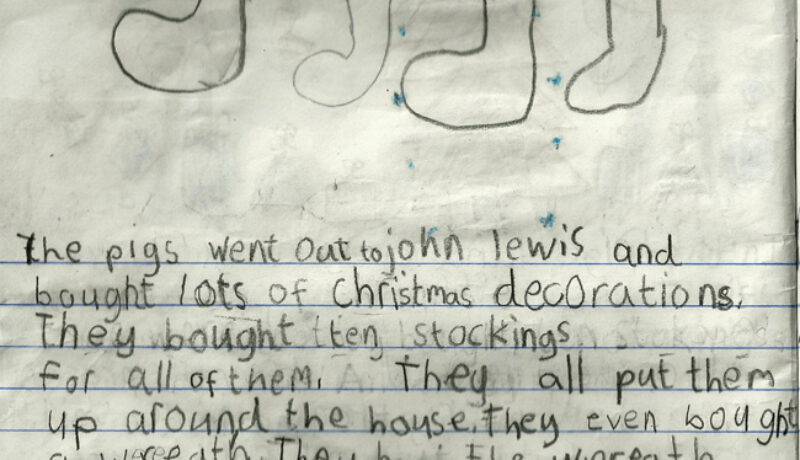 the pigs went out to john lewis and
bought lots of christmas decorations.
They bought ten stockings
for all of them. They all put them
up around the house. They even bought
a wreath. They